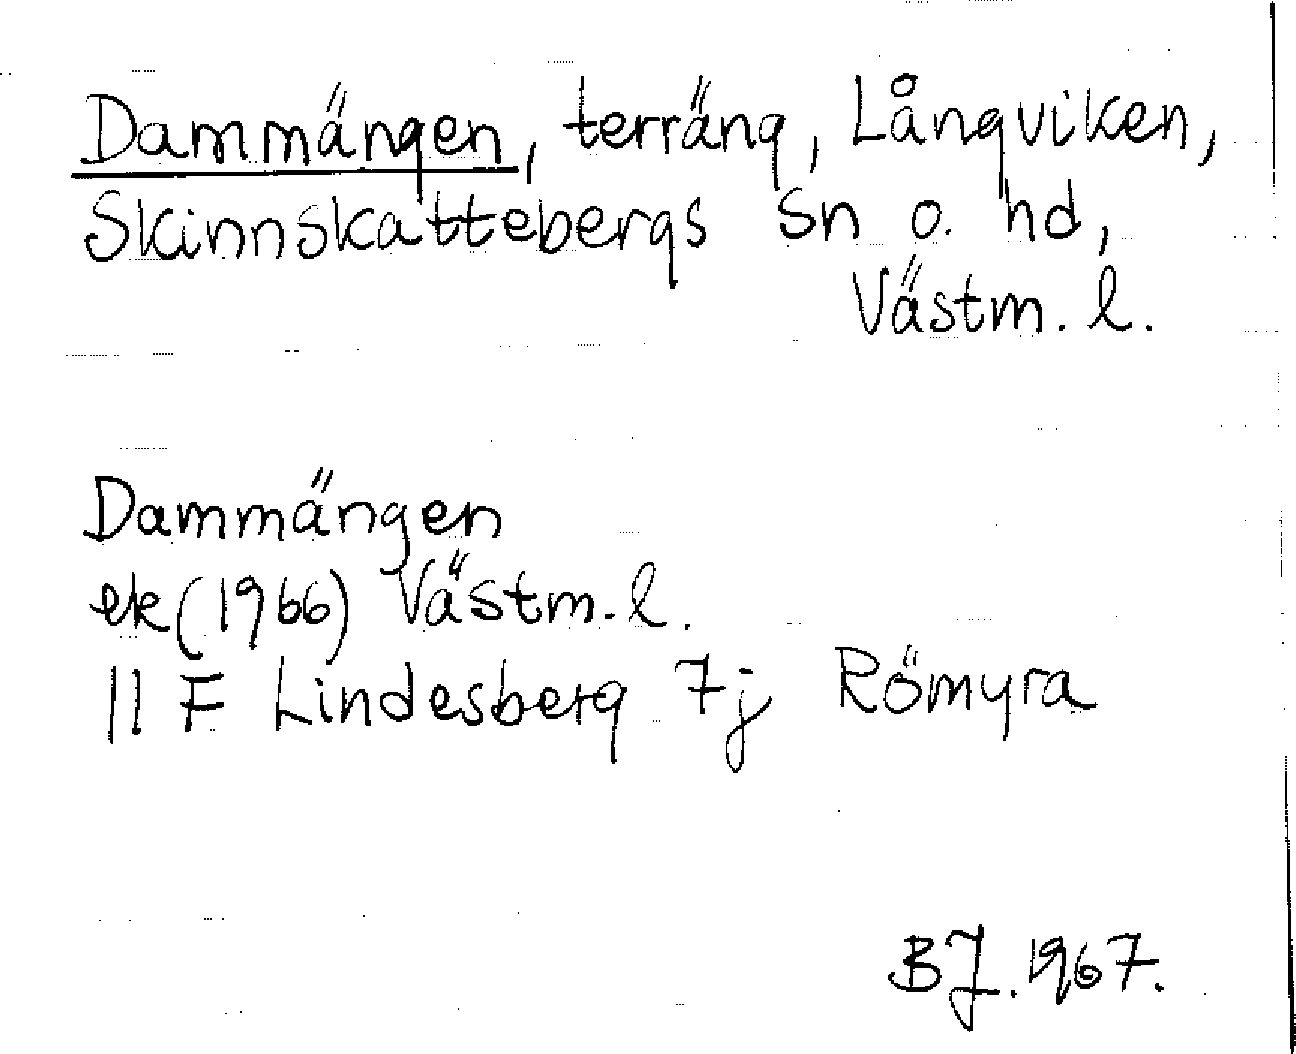 Dammängen, terräng, Långviken,
Skinnskattebergs sn o. hd,
Västm. l.
Dammängen
ek (1966) Västm. l.
11 F Lindesberg 7j Römyra
BJ. 1967.